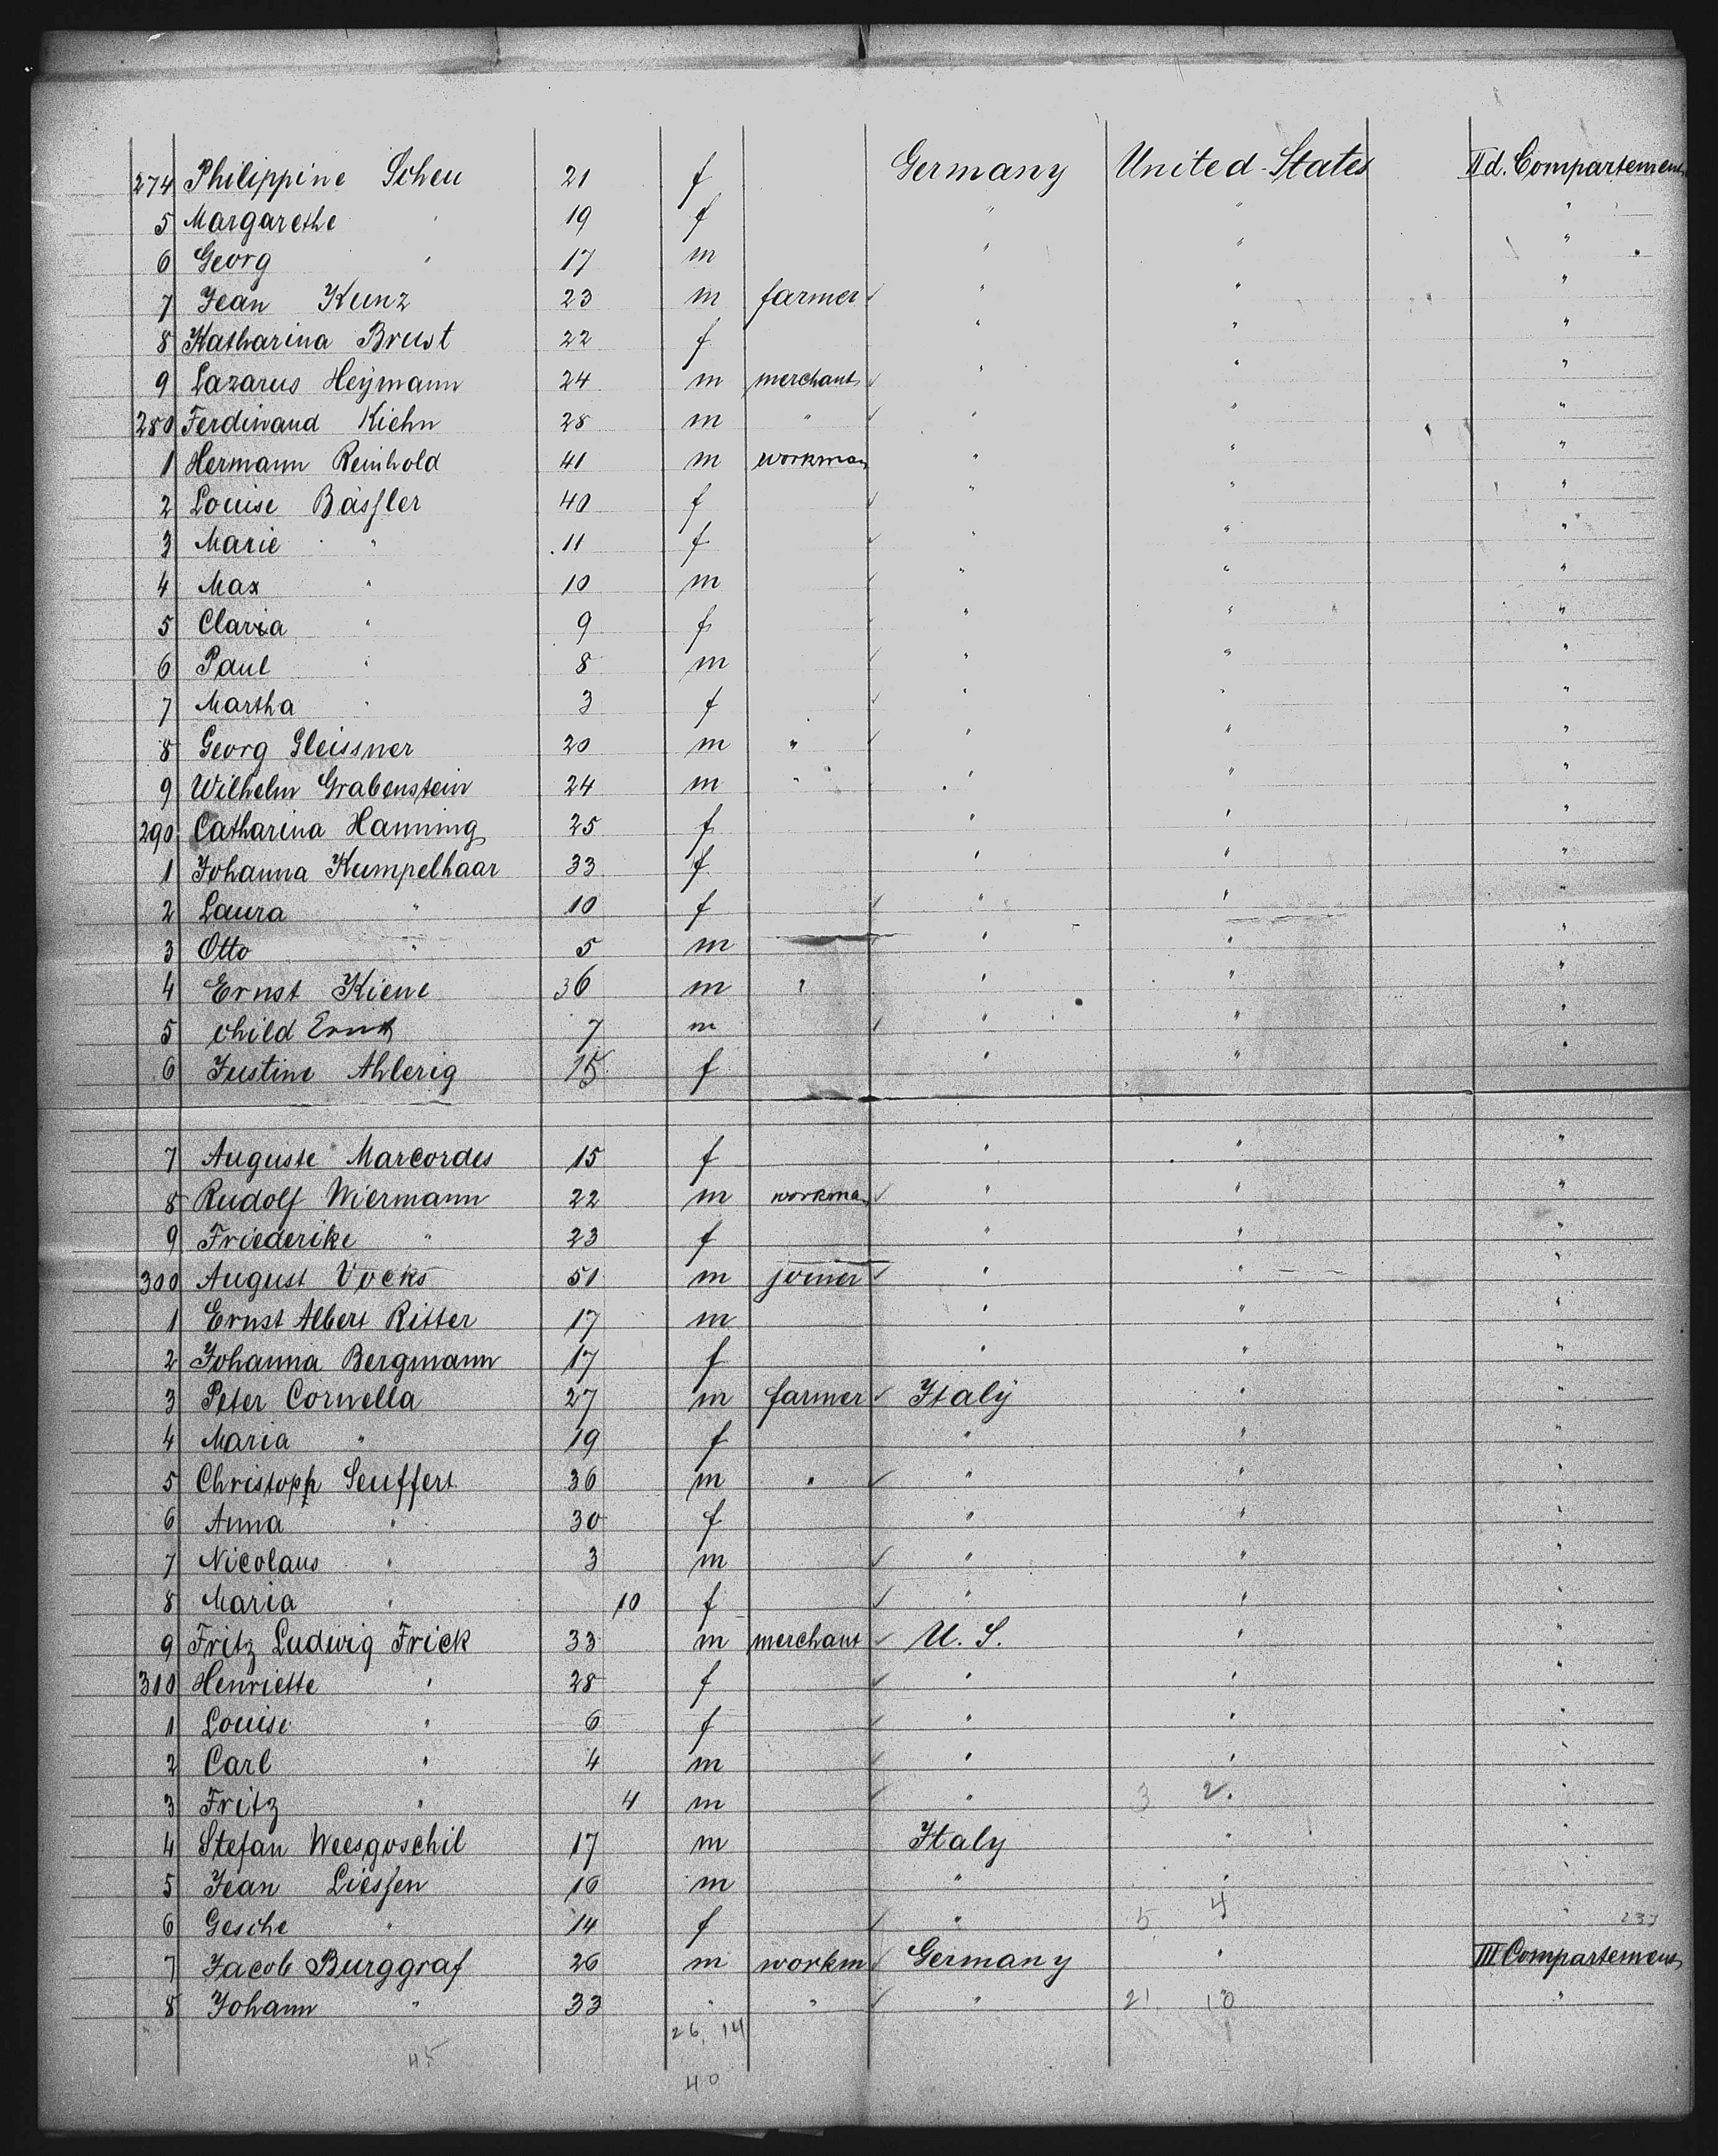 274 Philippine Scheu 21 f Germany United States IId. Compartement
5 Margarethe " 19 f " " "
6 Georg " 17 m " " "
7 Jean Kunz 23 m farmer " " "
8 Katharina Brust 22 f " " "
9 Lazarus Heymann 24 m merchant " " "
280 Ferdinand Kiehn 28 m " " " "
1 Hermann Reinhold 41 m workman " " "
2 Louise Bässler 40 f " " "
3 Marie " 11 f " " "
4 Max " 10 m " " "
5 Clara " 9 f " " "
6 Paul " 8 m " " "
7 Martha " 3 f " " "
8 Georg Gleissner 20 m " " " "
9 Wilhelm Grabenstein 24 m " " " "
290 Catharina Hanning 25 f " " "
1 Johanna Kumpelhaar 33 f " " "
2 Laura " 10 f " " "
3 Otto " 5 m " " "
4 Ernst Kiene 36 m " " " "
5 child Ernst 7 m " " "
6 Justine Ahlerig 15 f " " "
7 Auguste Marcordes 15 f " " "
8 Rudolf Wiermann 22 m workman " " "
9 Friederike " 23 f " " "
300 August Vocks 51 m joiner " " "
1 Ernst Albert Ritter 17 m " " "
2 Johanna Bergmann 17 f " " "
3 Peter Cornella 27 m farmer Italy " "
4 Maria " 19 f " " "
5 Christoph Seuffert 36 m " " " "
6 Anna " 30 f " " "
7 Nicolaus " 3 m " " "
8 Maria " 10 f " " "
9 Fritz Ludwig Frick 33 m merchant U. S. " "
310 Henriette " 28 f " " "
1 Louise " 6 f " " "
2 Carl " 4 m " " "
3 Fritz " 4 m " 3 2. "
4 Stefan Weesgoschil 17 m Italy " "
5 Jean Liessen 16 m " " "
6 Gesche " 14 f " 5 4 "
7 Jacob Burggraf 26 m workm Germany " III Compartement
8 Johann " 33 " " " 21 10 "
26, 14
45
40